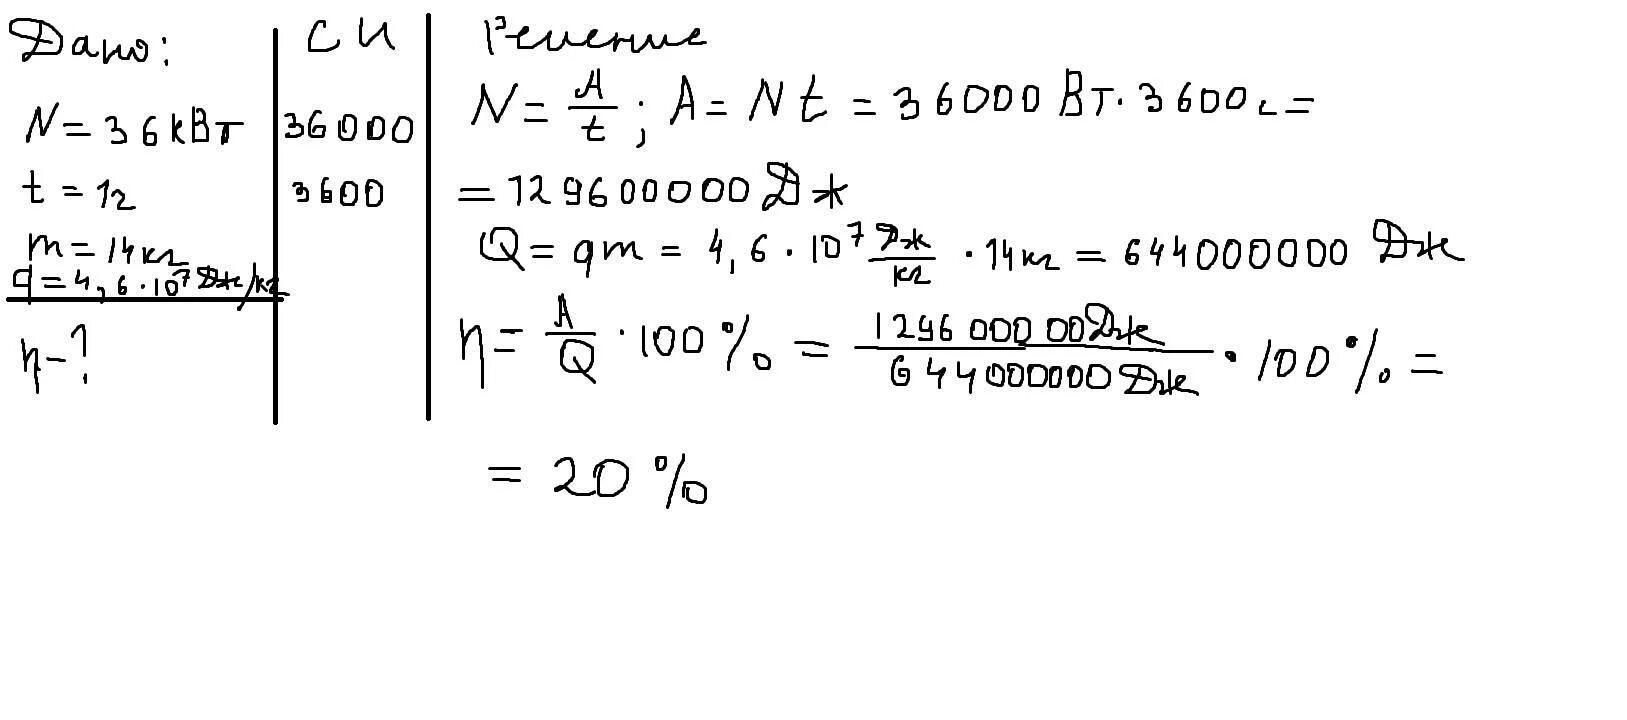 Дано:
N = 36 кВт
t = 1ч
m = 14 кг
q = 4,6 · 10⁷ Дж/кг
η - ?
СИ
36000
3600
Решение
N = A/t ; A = N t = 36000 Вт · 3600 с =
= 129600000 Дж
Q = qm = 4,6 · 10⁷ Дж/кг · 14 кг = 644000000 Дж
η = A/Q · 100 % = 129600000 Дж/644000000 Дж · 100 % =
= 20 %